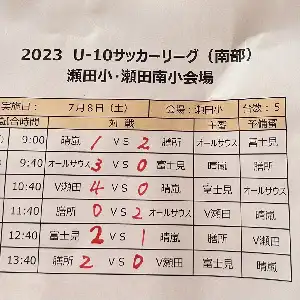 2023 U-10サッカーリーグ（南部）
瀬田小・瀬田南小会場
実施日： 7月8日（土） 会場：瀬田小 台数：5
試合時間 対戦 主審 予備審
9:00 晴嵐 1 VS 2 膳所 オールサウス 富士見
9:40 オールサウス 3 VS 0 富士見 晴嵐 膳所
10:40 V瀬田 4 VS 0 晴嵐 富士見 オールサウス
11:40 膳所 0 VS 2 オールサウス V瀬田 晴嵐
12:40 富士見 2 VS 1 晴嵐 膳所 V瀬田
13:40 膳所 2 VS 0 V瀬田 富士見 晴嵐